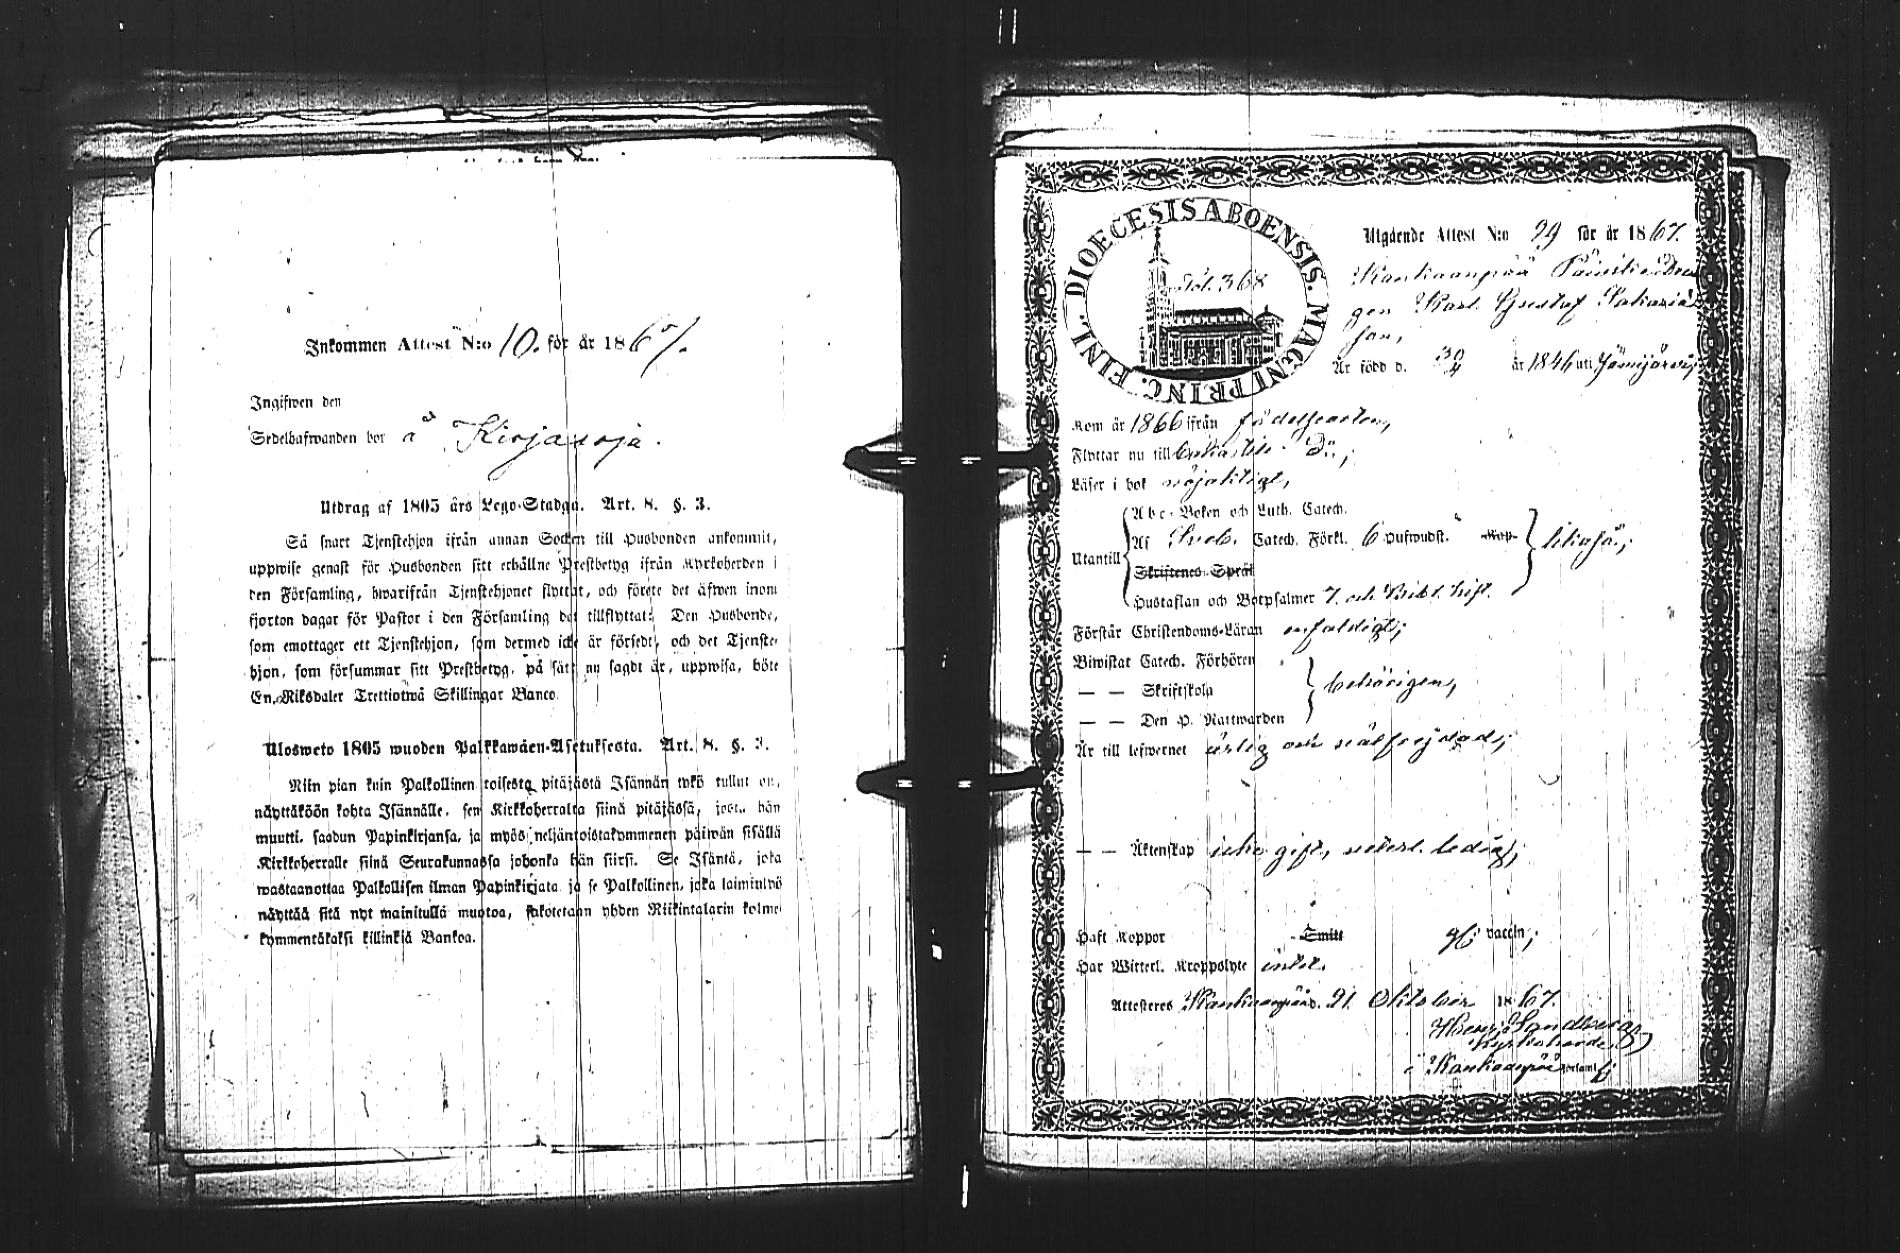 Inkommen Attest N:o 10. för år 1867.
Ingifwen den
Sedelhafwanden bor å Kirjasoja.
Utdrag af 1805 års Lego-Stadga. Art. 8. §. 3.
Så snart Tjenstehjon ifrån annan Socken till Husbonden ankommit,
uppwise genast för Husbonden sitt erhållne Prestbetyg ifrån Kyrkoherden i
den Församling, hwarifrån Tjenstehjonet flyttat, och förete det äfwen inom
fjorton dagar för Pastor i den Församling det tillflyttat. Den Husbonde,
som emottager ett Tjenstehjon, som dermed icke är försedt, och det Tjenste-
hjon, som försummar sitt Prestbetyg, på sätt nu sagdt är, uppwisa, böte
En Riksdaler Trettiotwå Skillingar Banco.
Ulosweto 1805 wuoden Palkkawäen-Asetuksesta. Art. 8. §. 3.
Niin pian kuin Palkollinen toisesta pitäjästä Isännän tykö tullut on,
näyttäköön kohta Isännälle, sen Kirkkoherralta siinä pitäjässä, josta hän
muutti, saadun Papinkirjansa, ja myös neljäntoistakymmenen päiwän sisällä
Kirkkoherralle siinä Seurakunnassa johonka hän siirsi. Se Isäntä, joka
wastaanottaa Palkollisen ilman Papinkirjata ja se Palkollinen, joka laiminlyö
näyttää sitä nyt mainitulla muotoa, sakotetaan yhden Riikintalarin kolme-
kymmentäkaksi killinkiä Bankoa.
DIOECESIS ABOENSIS. MAGNI PRINC. FINL.
Fol. 368
Utgående Attest N:o 29 för år 1867.
Kankaanpää
gen Karl Gustaf Sakarias
son,
Är född d. 30/4 år 1846 uti Jämijärvi;
Kom år 1866 ifrån födelseorten,
Flyttar nu till
Läser i bok nöjaktigt,
Abc-Boken och Luth. Catech.
Utantill Af Sveb. Catech. Förkl. 6 Hufwudst. Kap. likaså;
Skriftenes Språk
Hustaflan och Botpsalmer 7. och Bibl. hist.
Förstår Christendoms-Läran enfaldigt;
Biwistat Catech. Förhören
— — Skriftskola behörigen,
— — Den H. Nattwarden
Är till lefwernet ärlig och välfrejdad;
— — Äktenskap icke gift, ledig;
Haft Koppor Smitt vaccin;
Har Witterl. Kroppslyte intet.
Attesteras Kankaanpää d. 21. Oktober 1867.
Sandberg
Kyrkoherde
i Kankaanpää Församl.